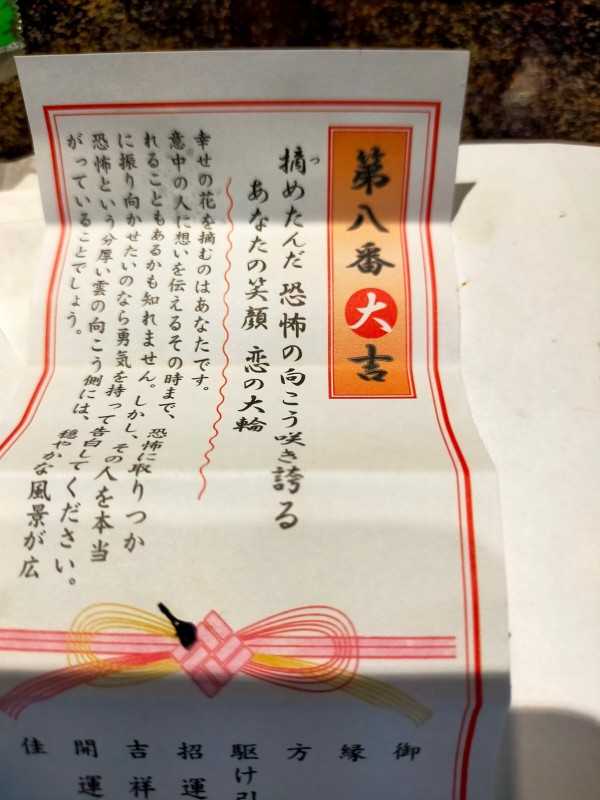 第八番 大吉
摘めたんだ 恐怖の向こう咲き誇る
つ
あなたの笑顔 恋の大輪
幸せの花を摘むのはあなたです。
意中の人に想いを伝えるその時まで、恐怖に取りつか
れることもあるかも知れません。しかし、その人を本当
に振り向かせたいのなら勇気を持って告白してください。
恐怖という分厚い雲の向こう側には、穏やかな風景が広
がっていることでしょう。
御
縁
方
駆け引
招運
吉祥
開運
佳